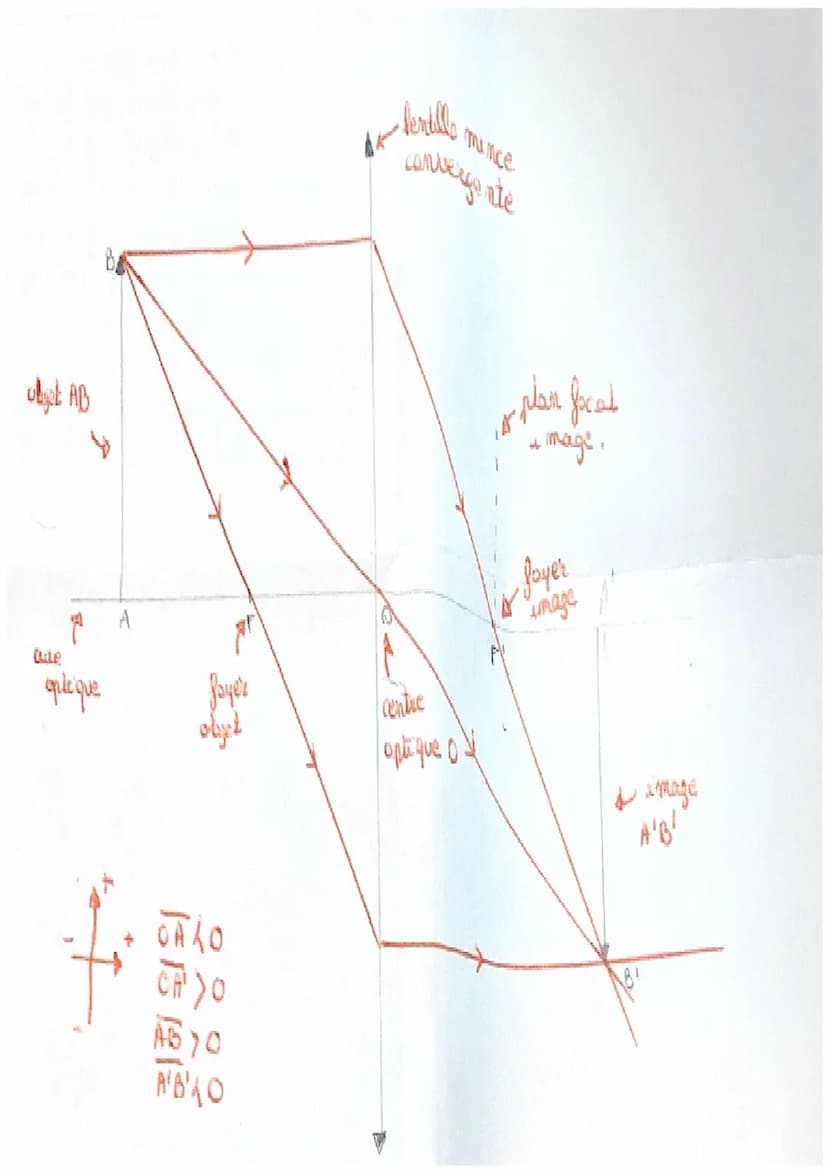 lentille mince
convergente
B
objet AB
plan focal
image.
foyer
image
A'
A
F
O
F'
axe
optique
foyer
objet
centre
optique O
image
A'B'
B'
+
- +
-
OA < 0
OA' > 0
AB > 0
A'B' < 0